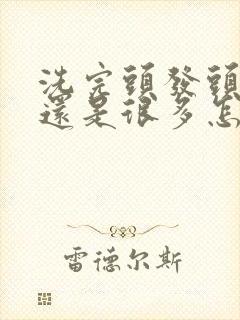 洗完頭發頭
還是很多怎
雷德尔斯